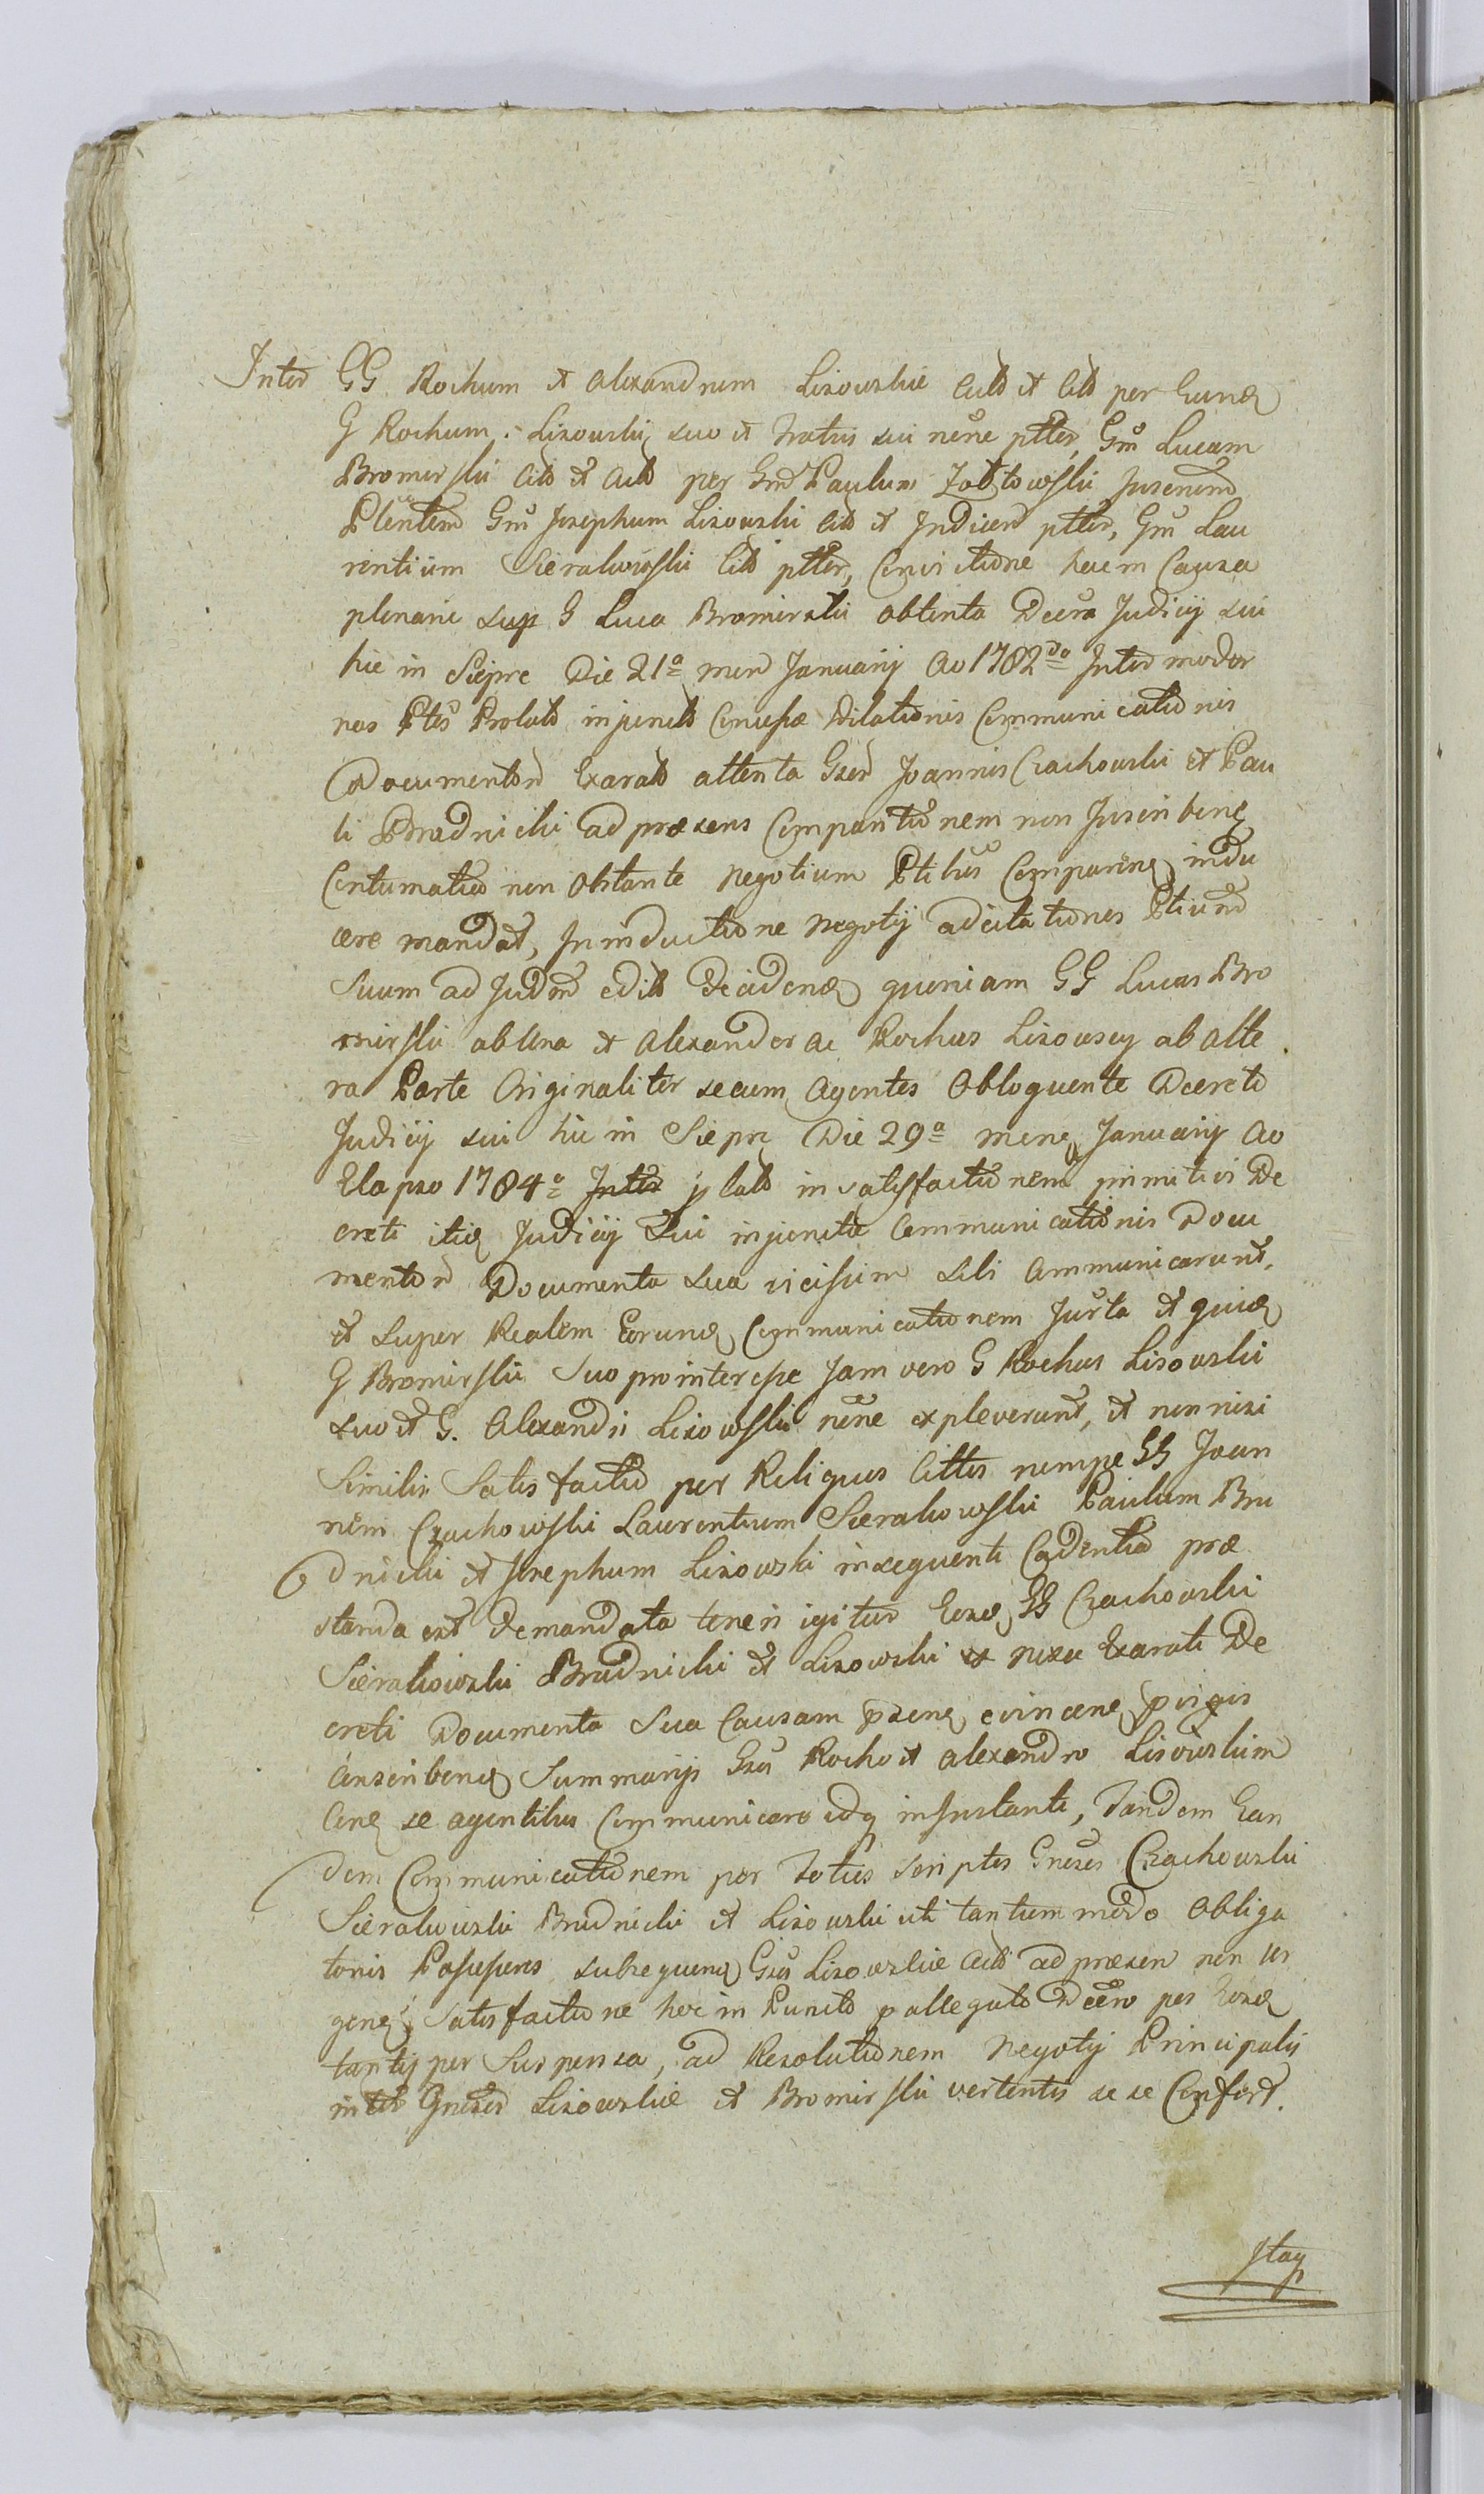 Inter GG Rochum et Alexandrum Lisowskie Citto et Citto per Eund
G Rochum Lisowski suo et Fratris sui nēne ptter, Gm Lucam
Bromirski Citto et Acto per Gm Paulum Zabtowski Jusenem
Plenitem Gm Josephum Lisowski Citto et Indicem ptter, Gm Lau
rentium Sierakowski Citto ptter, Convictione hac in Causa
plenarie sup G Luca Bromirski obtenta Decre Judicij sui
hic in Sieprc Die 21a men Januarij Ao 1782do Inter moder
nas Ptes Prolato injuncto Concussæ Dilationis Communicationis
Documentor Exarato attenta Gser Joannis Czachowski et Pau
li Brudnicki ad præsens Compartionem non Inscriben
Contumatia non Obstante Negotium Ptibus Comparen indu
cere mandat, In inductione Negotij ad citationes Ptium
Suum ad Judm edito Deciden quoniam GG Lucas Bro
mirski ab Una et Alexander ac Rochus Lisowscy ab alte
ra Parte Originaliter secum Agentes Obloquente Decreto
Judicij sui hic in Siepre Die 29a mene Januarij Ao
Elapso 1784o plato in satisfactionem primitivi De
creti itid Judicij Sui injunctæ Communicationis Docu
mentor Documenta sua vicissim sibi Communicarunt,
et super Realem Eorund Communicationem Jurta et quid
G Bromirski Suo pro interesse Jam vero G Rochus Lisowski
suo et G. Alexandri Lisowski nēne expleverunt, et non nisi
Similis Satisfactio per Reliquos Cittos nempe GG Joan
nem Czachowski Laurentium Sierakowski Paulum Bru
dnicki et Josephum Lisowski in sequenti Cadentia præ
standa est Demandata teneri igitur Eosd GG Czachowski
Sierakowski Brudnicki et Lisowski ex nexu Exarati De
creti Documenta Sua Causam psene evincene pvigis
Conscribend Summarijs Gsis Rocho et Alexandro Lisowskim
Cone se agentibus Communicare idq infrustanti, Tandem Ean
dem Communicationem per Toties Scriptos Gneses Czachowski
Sierakowski Brudnicki et Lisowski uti tantummodo Obliga
toris Possessores subsequene Gsis Lisowskie Acto ad præsen non ur
gene, Satisfactione hoc in Puncto p allegato Decro per Eosd
tantisper Suspensa, ad Resolutionem Negotij Principalis
inter Gneser Lisowskie et Bromirski vertentis se se Confert.
Stay